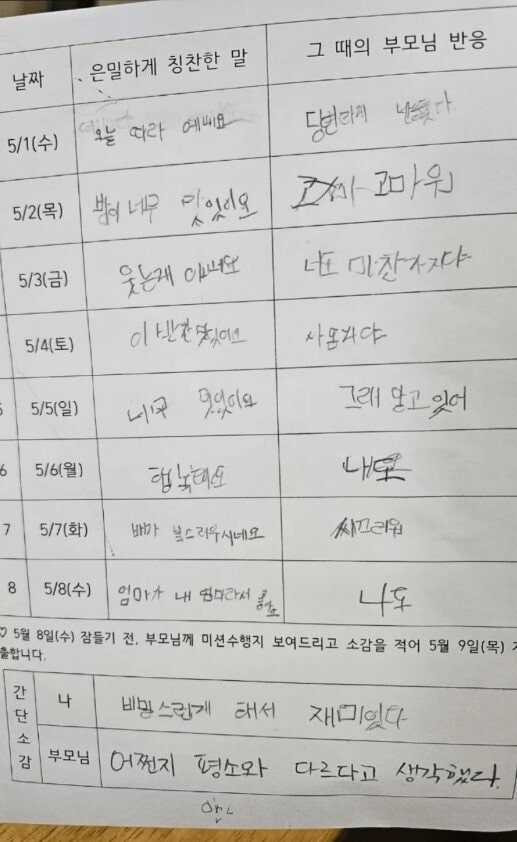 날짜 은밀하게 칭찬한 말 그 때의 부모님 반응
5/1(수) 오늘 따라 예뻐요
5/2(목) 밥이 너무 맛있어요 고마워
5/3(금) 웃는게 너도 마찬가지야
5/4(토) 이 반찬 맛있어요
5/5(일) 맛있어요 그래 알고 있어
6 5/6(월) 행복해요 나도
7 5/7(화) 배가 시끄러워
8 5/8(수) 엄마가 내 엄마라서 나도
♡ 5월 8일(수) 잠들기 전, 부모님께 미션수행지 보여드리고 소감을 적어 5월 9일(목)
출합니다.
간단소감
나 비밀스럽게 해서 재미있다
부모님 어쩐지 평소와 다르다고 생각했다.